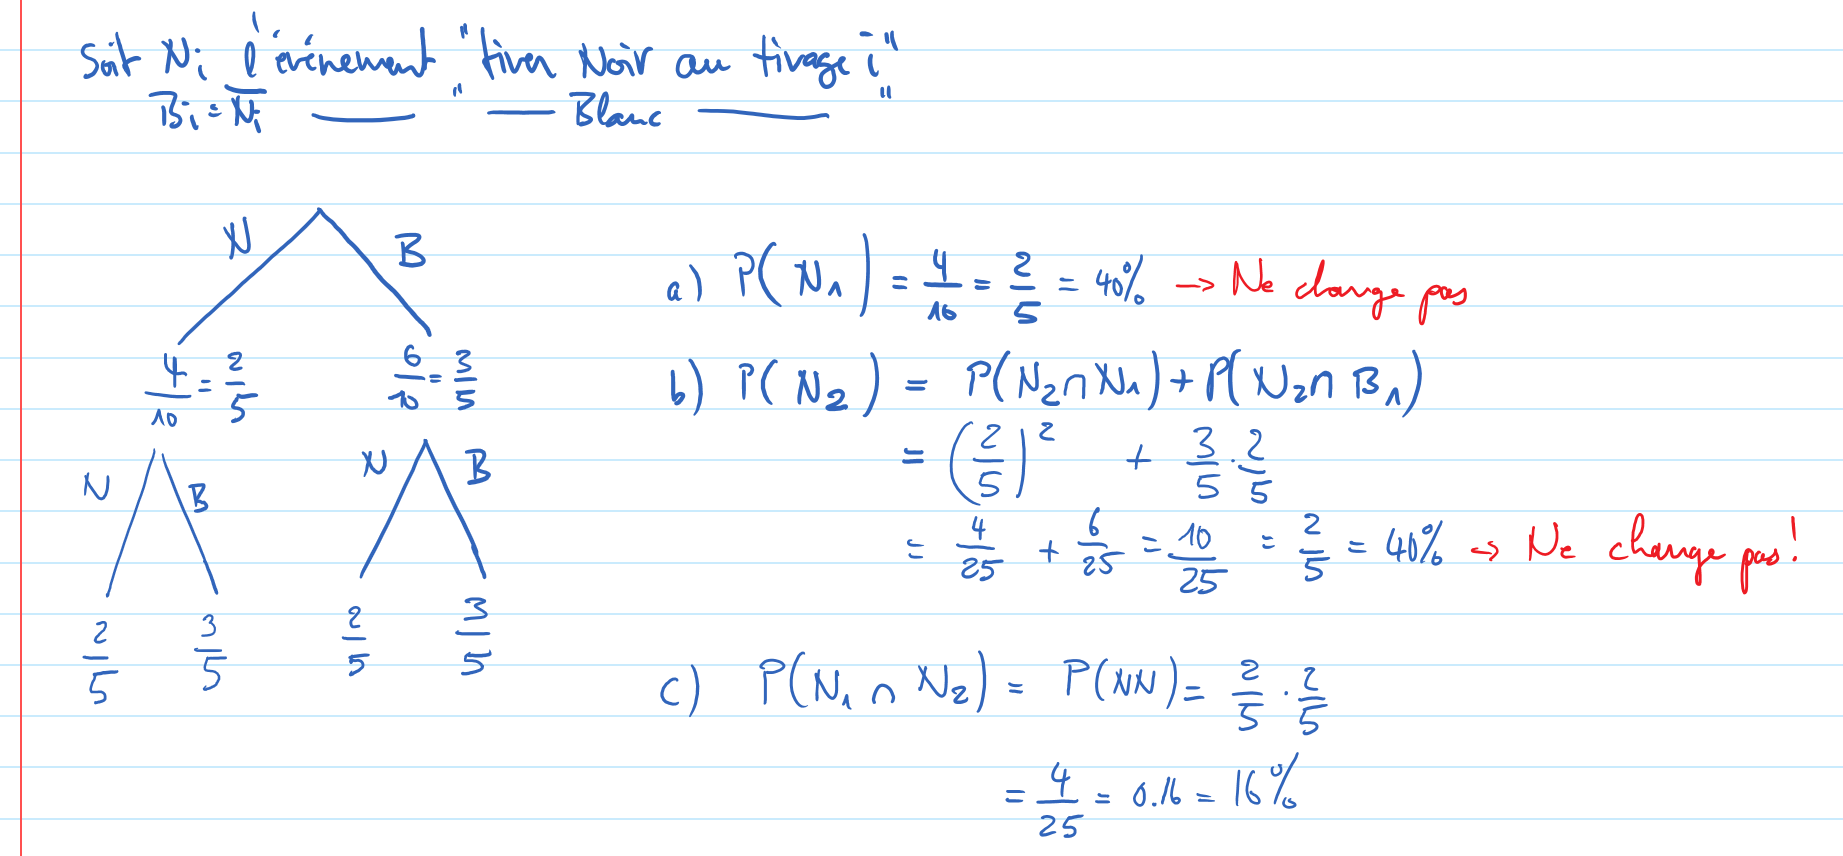 Soit Ni l'événement "tirer Noir au tirage i"
Bi = N̅i ——— " —— Blanc ——— "
N B
4/10 = 2/5 6/10 = 3/5
N B N B
2/5 3/5 2/5 3/5
a) P(N1) = 4/10 = 2/5 = 40% → Ne change pas
b) P(N2) = P(N2 ∩ N1) + P(N2 ∩ B1)
= (2/5)² + 3/5 · 2/5
= 4/25 + 6/25 = 10/25 = 2/5 = 40% → Ne change pas!
c) P(N1 ∩ N2) = P(NN) = 2/5 · 2/5
= 4/25 = 0.16 = 16%